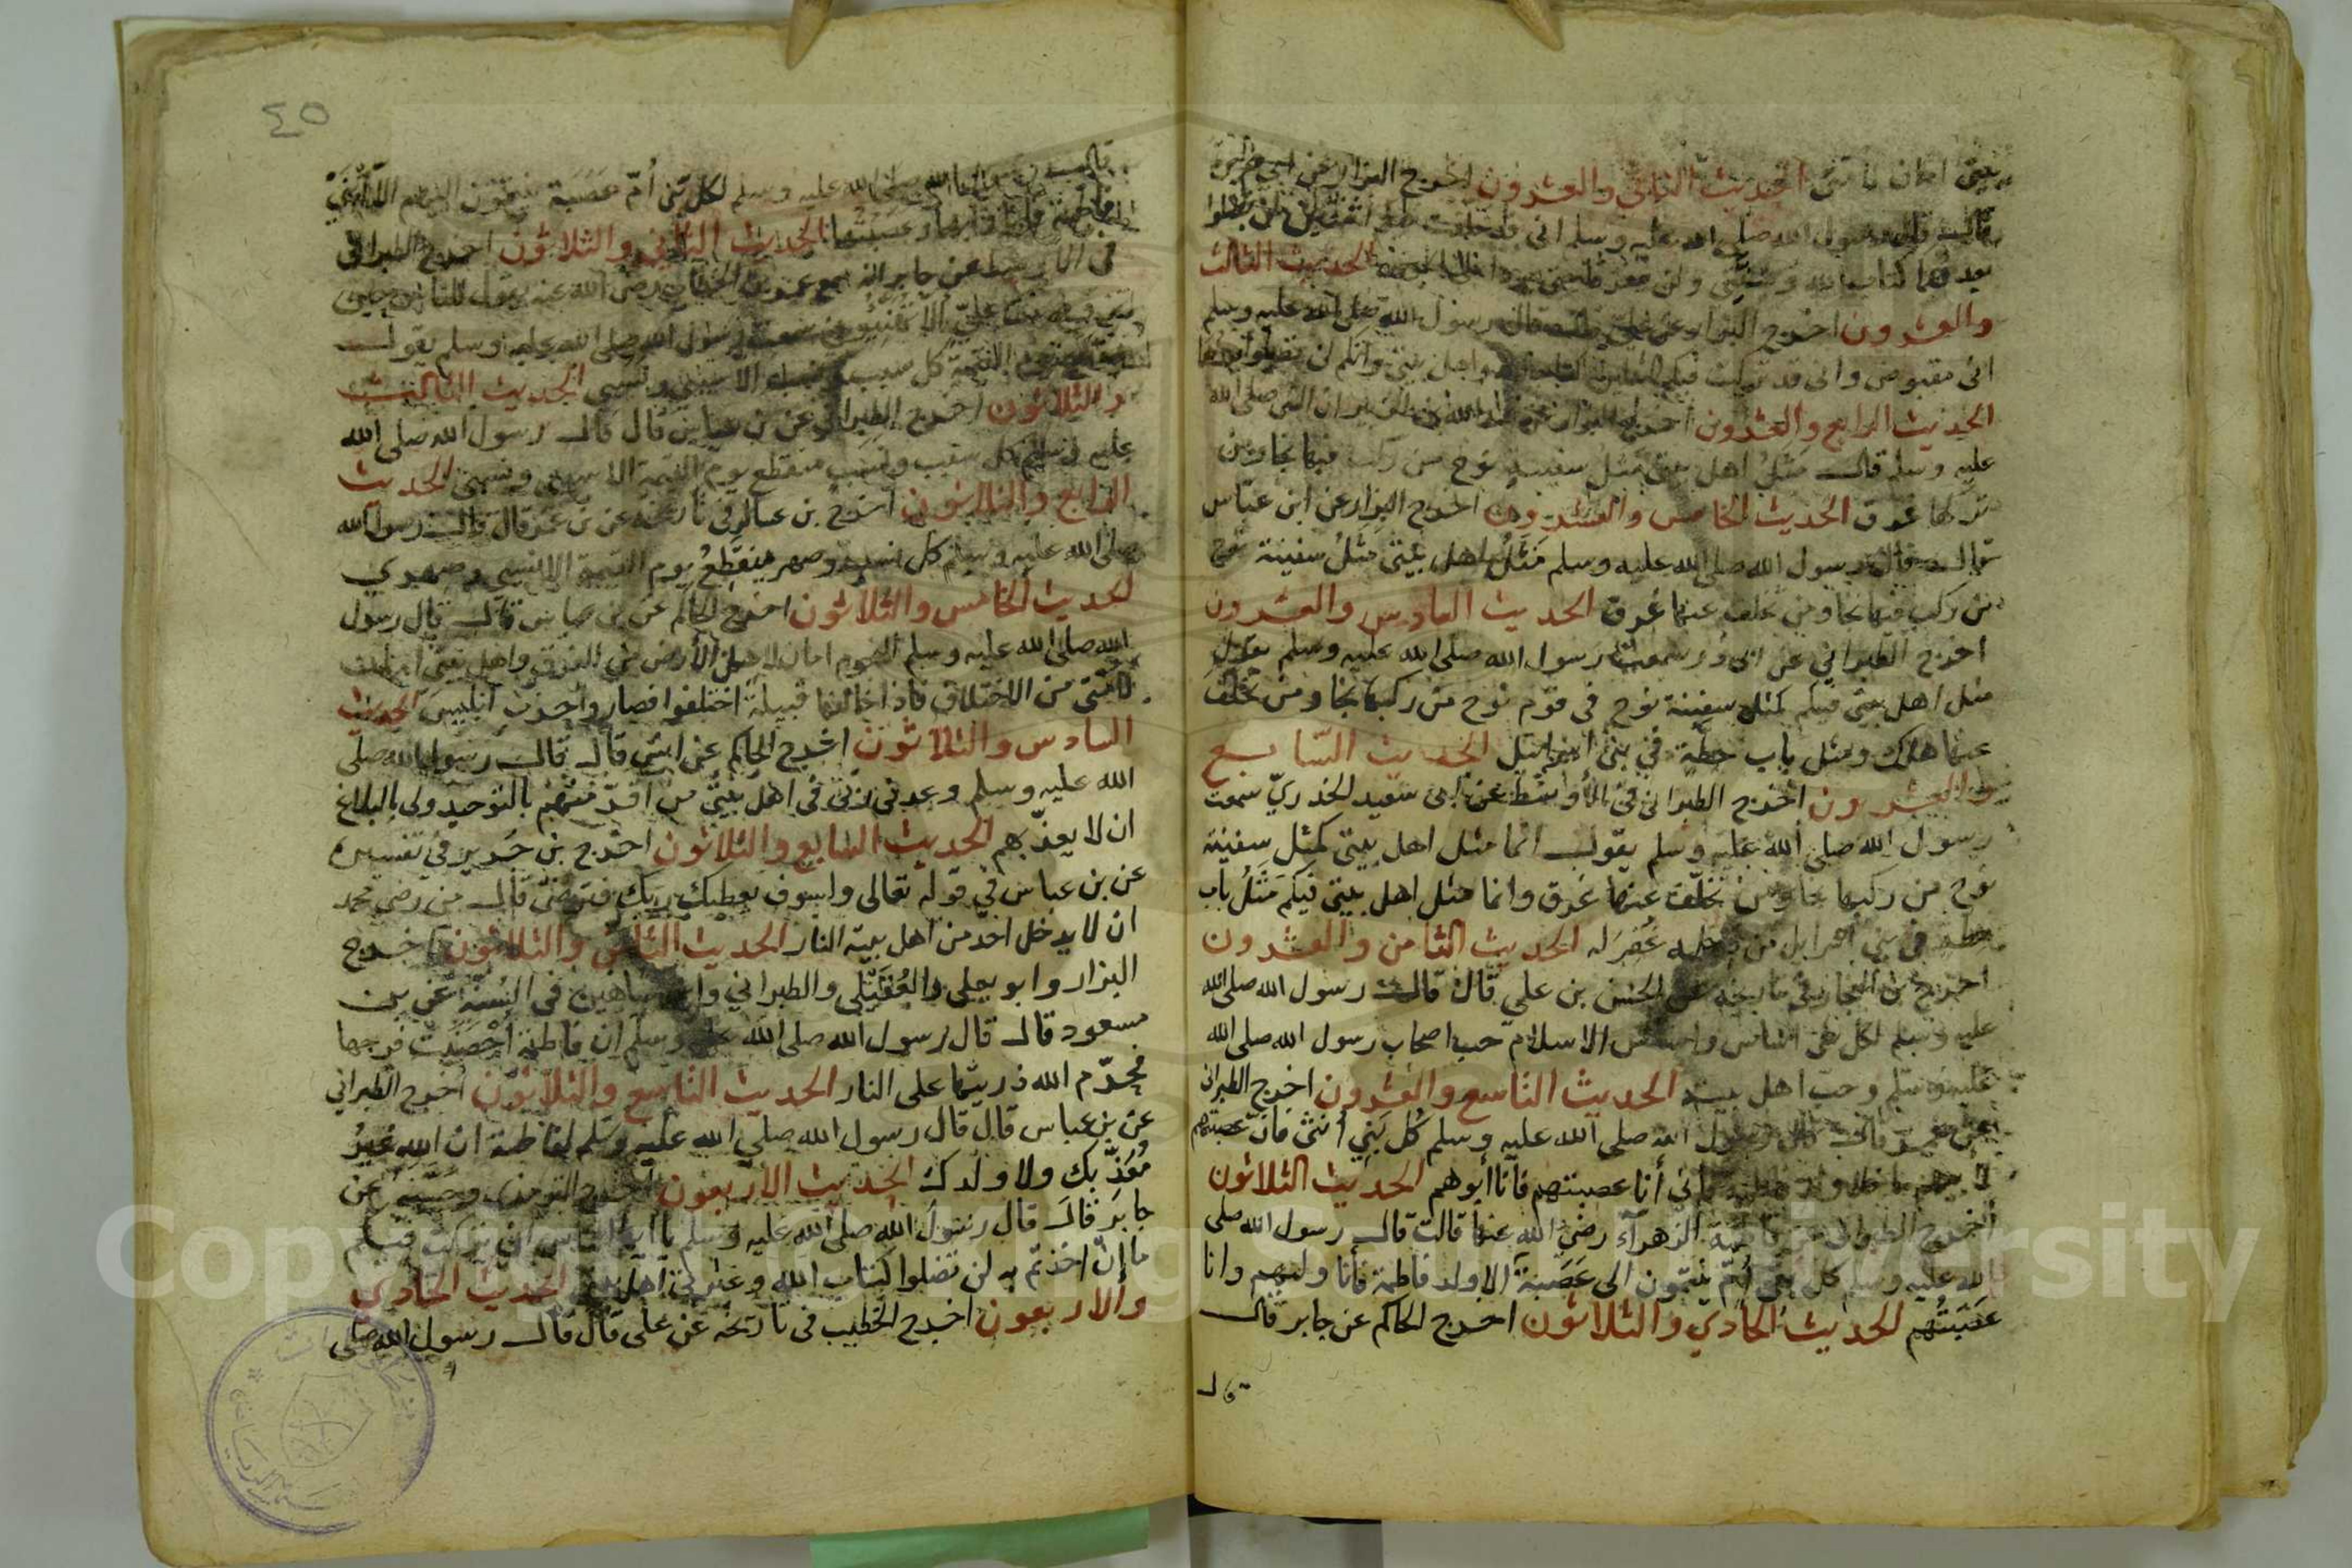 بيتي امان لامتي الحديث الثاني والعشرون اخرج البزار عن ابي هريرة
قال قال رسول الله صلى الله عليه وسلم اني قد خلفت فيكم اثنين لن تضلوا
بعدهما كتاب الله و ولن يتفرقا حتى يردا على الحوض الحديث الثالث
والعشرون اخرج البزار عن علي قال قال رسول الله صلى الله عليه وسلم
اني مقبوض واني قد تركت فيكم الثقلين كتاب الله واهل بيتي وانكم لن تضلوا بعدهما
الحديث الرابع والعشرون اخرج البزار عن عبد الله بن الزبير ان النبي صلى الله
عليه وسلم قال مثل اهل بيتي مثل سفينة نوح من ركب فيها نجا ومن
تركها غرق الحديث الخامس والعشرون اخرج البزار عن ابن عباس
قال قال رسول الله صلى الله عليه وسلم مَثَلُ اهل بيتي مَثَلُ سفينة نوح
من ركب فيها نجا ومن تخلف عنها غرق الحديث السادس والعشرون
اخرج الطبراني عن ابي ذر سمعت رسول الله صلى الله عليه وسلم يقول
مثل اهل بيتي فيكم كمثل سفينة نوح في قوم نوح من ركبها نجا ومن تخلف
عنها هلك ومثل باب حطة في بني اسرائيل الحديث السابع
والعشرون اخرج الطبراني في الأوسط عن ابي سعيد الخدري سمعت
رسول الله صلى الله عليه وسلم يقول انما مثل اهل بيتي كمثل سفينة
نوح من ركبها نجا ومن تخلف عنها غرق وانما مثل اهل بيتي فيكم مَثَلُ باب
حطة في بني اسرايل من دخله غفر له الحديث الثامن والعشرون
اخرج بن النجار في تاريخه عن الحسن بن علي قال قال رسول الله صلى الله
عليه وسلم لكل شي اساس واساس الاسلام حب اصحاب رسول الله صلى الله
عليه وسلم وحب اهل بيته الحديث التاسع والعشرون اخرج الطبراني
عن عمر قال قال رسول الله صلى الله عليه وسلم كل بني أنثى فان عصبتهم
لابيهم ما خلا ولد فاطمة فاني أنا عصبتهم فأنا أبوهم الحديث الثلاثون
أخرج الطبراني عن فاطمة الزهرآء رضي الله عنها قالت قال رسول الله صلى
الله عليه وسلم كل بني أمّ ينتمون الى عَصَبَة الا ولد فاطمة فأنا وليهم وانا
عَصَبَتُهم الحديث الحادي والثلاثون اخرج الحاكم عن جابر قال
قال
٤٥
قال رسول الله صلى الله عليه وسلم لكل بني أُمّ عَصَبَة ينتمون اليهم الا ابني
فاطمة فأنا وليهما وعصبتهما الحديث الثاني والثلاثون اخرج الطبراني
في الاوسط عن جابر انه سمع عمر بن الخطاب رضي الله عنه يقول للناس حين
تزوج بنت علي ألا تهنئوني سمعت رسول الله صلى الله عليه وسلم يقول
ينقطع يوم القيمة كل سبب ونسب الا سببي ونسبي الحديث الثالث
والثلاثون اخرج الطبراني عن بن عباس قال قال رسول الله صلى الله
عليه وسلم كل سبب ونسب منقطع يوم القيمة الا سببي ونسبي الحديث
الرابع والثلاثون اخرج بن عساكر في تاريخه عن بن عمر قال قال رسول الله
صلى الله عليه وسلم كل نسب وصهر منقطعُ يوم القيمة الا نسبي وصهري
الحديث الخامس والثلاثون اخرج الحاكم عن بن عباس قال قال رسول
الله صلى الله عليه وسلم النجوم امان لاهل الأرض من الغرق واهل بيتي امان
لامتي من الاختلاف فاذا خالفتها قبيلة اختلفوا فصاروا حزب ابليس الحديث
السادس والثلاثون اخرج الحاكم عن انس قال قال رسول الله صلى
الله عليه وسلم وعدني ربي في اهل بيتي من اقرّ منهم بالتوحيد ولي بالبلاغ
ان لا يعذبهم الحديث السابع والثلاثون اخرج بن جَرير في تفسيره
عن بن عباس في قوله تعالى ولسوف يعطيك ربك فترضى قال من رضى محمد
ان لا يدخل احد من اهل بيته النار الحديث الثامن والثلاثون اخرج
البزار وابو يعلى والعُقَيْلي والطبراني وابن شاهين في السنة عن بن
مسعود قال قال رسول الله صلى الله عليه وسلم ان فاطمة أحصنت فرجها
فحرّم الله ذريتها على النار الحديث التاسع والثلاثون اخرج الطبراني
عن بن عباس قال قال رسول الله صلى الله عليه وسلم لفاطمة ان الله غيرُ
مُعَذِّبك ولا ولدك الحديث الاربعون اخرج الترمذي وحسّنه عن
جابر قال قال رسول الله صلى الله عليه وسلم يا ايها الناس اني تركت فيكم
ما إن اخذتم به لن تضلوا كتاب الله وعترتي اهل بيتي الحديث الحادي
والاربعون اخرج الخطيب في تاريخه عن علي قال قال رسول الله صلى
Copyright © King Saud University